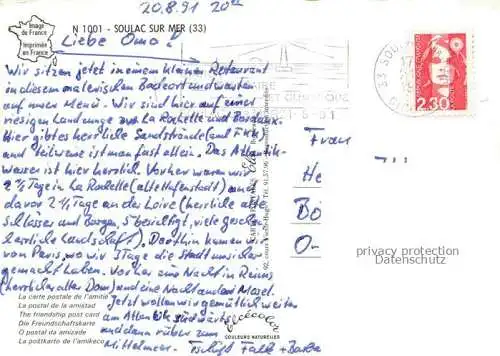 20.8.91 20⁰⁰
Image
de France
Imprimée
en France
N 1001 - SOULAC SUR MER (33)
Liebe Oma!
Wir sitzen jetzt in einem kleinen Restaurant
in diesem malerischen Badeort und warten
auf unser Menü. Wir sind hier auf einer
riesigen Landzunge zw. La Rochelle und Bordeaux.
Hier gibt es herrliche Sandstrände (auf FKK)
und teilweise ist man fast allein. Das Atlantik-
wasser ist hier herrlich. Vorher waren wir
2 ½ Tage in La Rochelle (alte Hafenstadt) und
davor 2 ½ Tage an der Loire (herrliche alte
Schlösser und Burgen, 5 besichtigt, viele gesehen
herrliche Landschaft). Dorthin kamen wir
von Paris, wo wir 3 Tage die Stadt unsicher
gemacht haben. Vorher eine Nacht in Reims
(herrlicher alter Dom) und eine Nacht an der Mosel.
Jetzt wollen wir gemütlich weiter
am Atlantik südwärts
und dann rüber zum
Mittelmeer. Tschüß Falk + Barba
La carte postale de l'amitié
La postal de la amistad
The friendship post card
Die Freundschaftskarte
O postal da amizade
La poŝtkarto de l'amikeco
COULEURS NATURELLES
33 SOUL
2,30
Frau
He
Bö
O-
privacy protection
Datenschutz